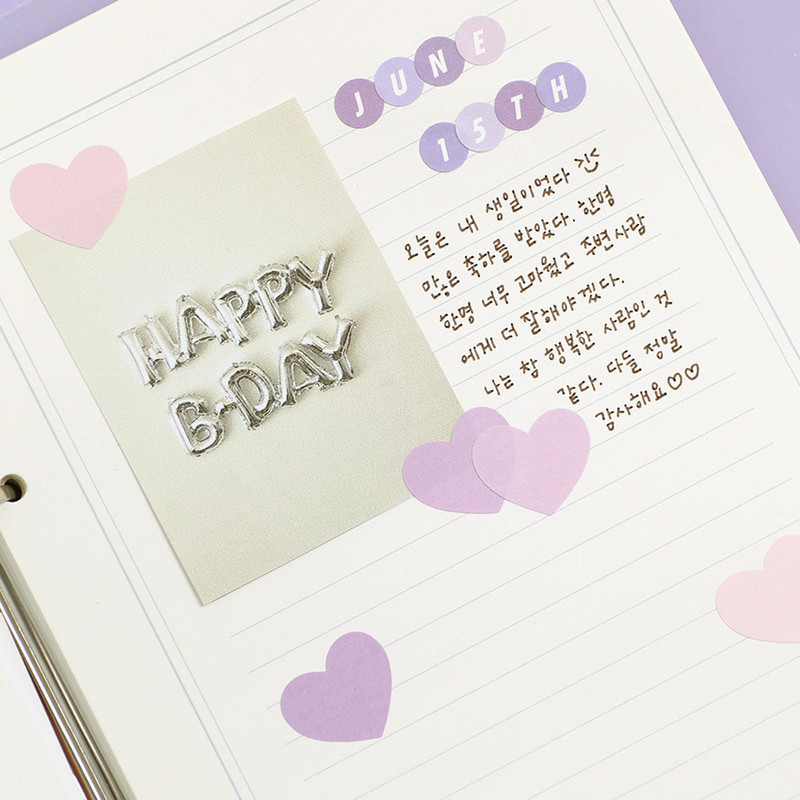 JUNE
15TH
HAPPY
B-DAY
오늘은 내 생일이었다 >i<
많은 축하를 받았다. 한명
한명 너무 고마웠고 주변사람
에게 더 잘해야겠다.
나는 참 행복한 사람인 것
같다. 다들 정말
감사해요♡♡